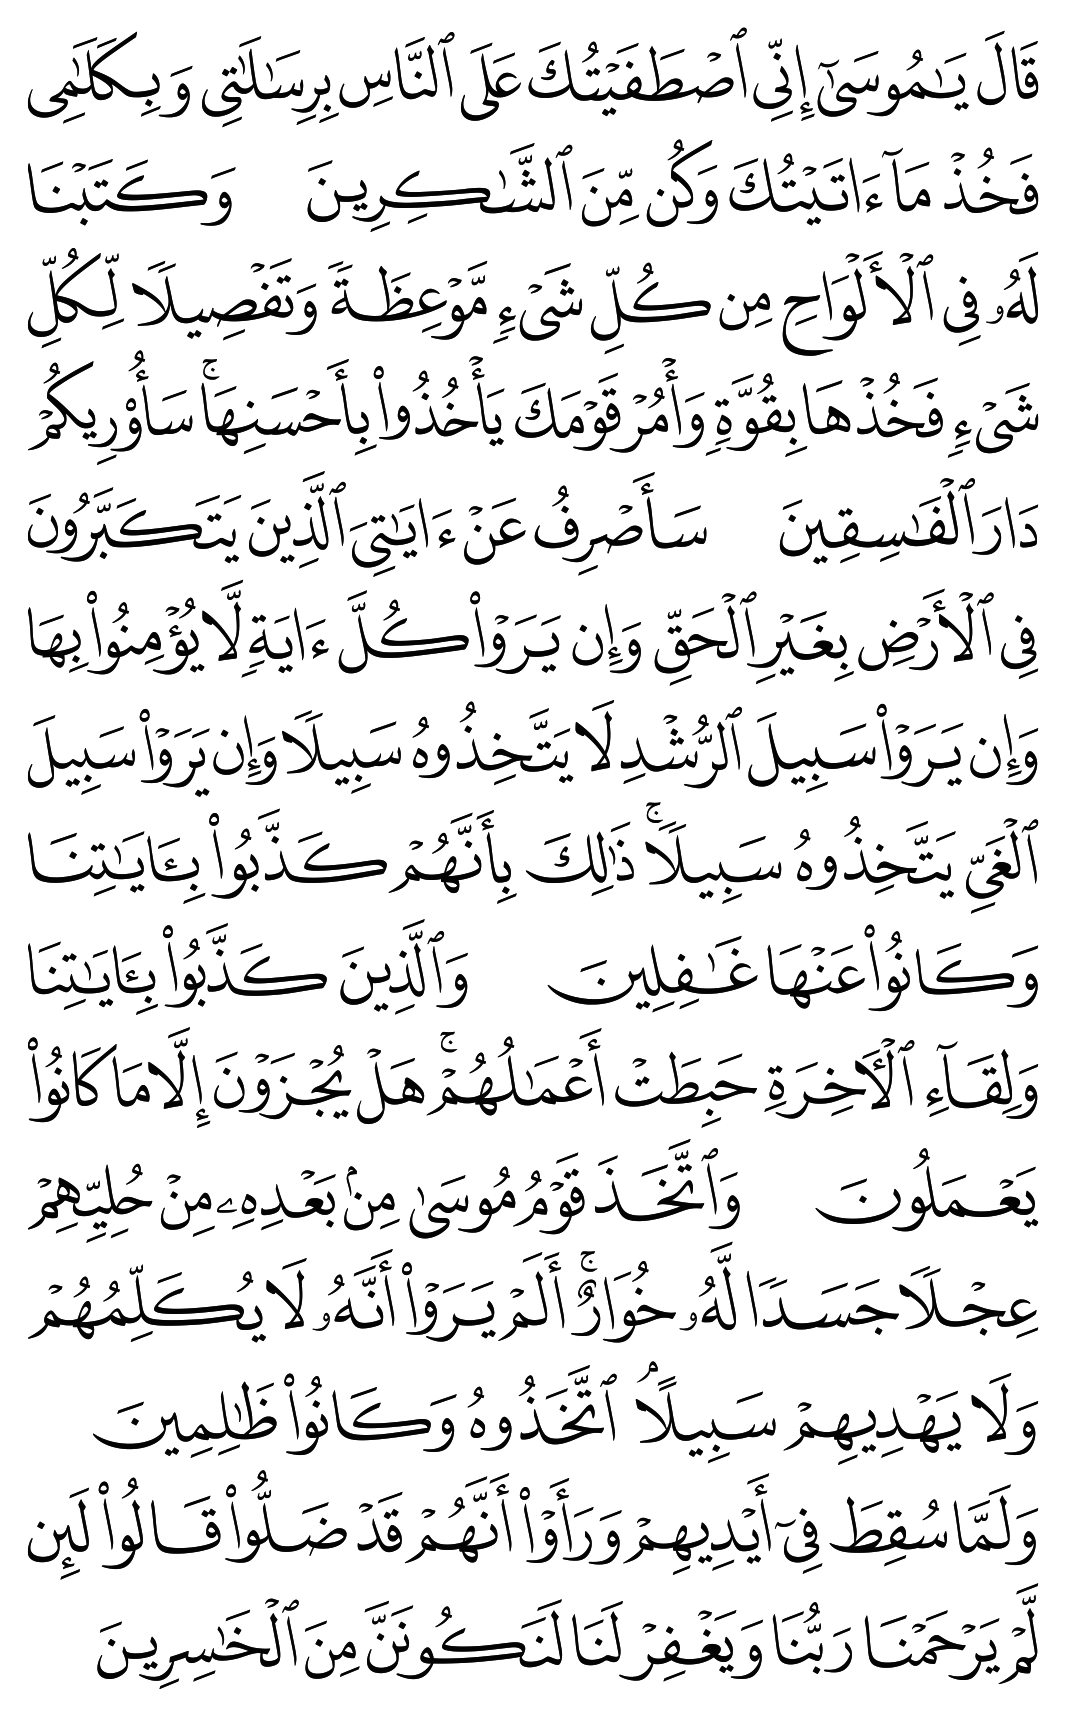 قَالَ يَـٰمُوسَىٰٓ إِنِّى ٱصْطَفَيْتُكَ عَلَى ٱلنَّاسِ بِرِسَـٰلَـٰتِى وَبِكَلَـٰمِى
فَخُذْ مَآ ءَاتَيْتُكَ وَكُن مِّنَ ٱلشَّـٰكِرِينَ وَكَتَبْنَا
لَهُۥ فِى ٱلْأَلْوَاحِ مِن كُلِّ شَىْءٍ مَّوْعِظَةً وَتَفْصِيلًا لِّكُلِّ
شَىْءٍ فَخُذْهَا بِقُوَّةٍ وَأْمُرْ قَوْمَكَ يَأْخُذُوا۟ بِأَحْسَنِهَا ۚ سَأُو۟رِيكُمْ
دَارَ ٱلْفَـٰسِقِينَ سَأَصْرِفُ عَنْ ءَايَـٰتِىَ ٱلَّذِينَ يَتَكَبَّرُونَ
فِى ٱلْأَرْضِ بِغَيْرِ ٱلْحَقِّ وَإِن يَرَوْا۟ كُلَّ ءَايَةٍ لَّا يُؤْمِنُوا۟ بِهَا
وَإِن يَرَوْا۟ سَبِيلَ ٱلرُّشْدِ لَا يَتَّخِذُوهُ سَبِيلًا وَإِن يَرَوْا۟ سَبِيلَ
ٱلْغَىِّ يَتَّخِذُوهُ سَبِيلًا ۚ ذَٰلِكَ بِأَنَّهُمْ كَذَّبُوا۟ بِـَٔايَـٰتِنَا
وَكَانُوا۟ عَنْهَا غَـٰفِلِينَ وَٱلَّذِينَ كَذَّبُوا۟ بِـَٔايَـٰتِنَا
وَلِقَآءِ ٱلْـَٔاخِرَةِ حَبِطَتْ أَعْمَـٰلُهُمْ ۚ هَلْ يُجْزَوْنَ إِلَّا مَا كَانُوا۟
يَعْمَلُونَ وَٱتَّخَذَ قَوْمُ مُوسَىٰ مِنۢ بَعْدِهِۦ مِنْ حُلِيِّهِمْ
عِجْلًا جَسَدًا لَّهُۥ خُوَارٌ ۚ أَلَمْ يَرَوْا۟ أَنَّهُۥ لَا يُكَلِّمُهُمْ
وَلَا يَهْدِيهِمْ سَبِيلًا ۘ ٱتَّخَذُوهُ وَكَانُوا۟ ظَـٰلِمِينَ
وَلَمَّا سُقِطَ فِىٓ أَيْدِيهِمْ وَرَأَوْا۟ أَنَّهُمْ قَدْ ضَلُّوا۟ قَالُوا۟ لَئِن
لَّمْ يَرْحَمْنَا رَبُّنَا وَيَغْفِرْ لَنَا لَنَكُونَنَّ مِنَ ٱلْخَـٰسِرِينَ